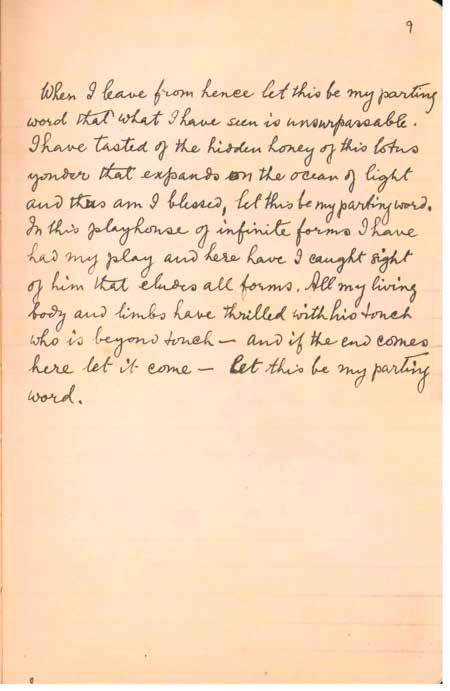 9
When I leave from hence let this be my parting
word that what I have seen is unsurpassable.
I have tasted of the hidden honey of this lotus
yonder that expands on the ocean of light
and thus am I blessed, let this be my parting word.
In this playhouse of infinite forms I have
had my play and here have I caught sight
of him that eludes all forms. All my living
body and limbs have thrilled with his touch
who is beyond touch — and if the end comes
here let it come — Let this be my parting
word.